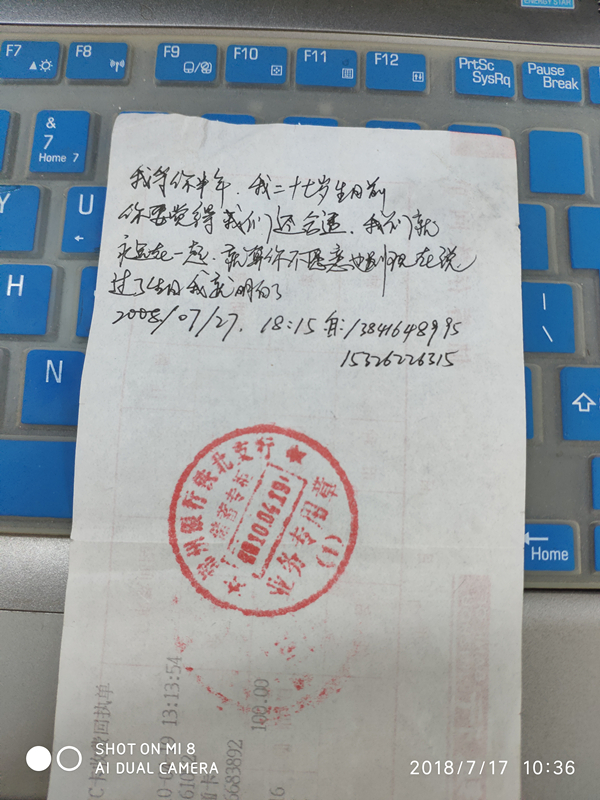 ENERGY STAR
F7
F8
F9
F10
F11
F12
PrtSc
SysRq
Pause
Break
&
7
Home 7
Y
U
H
N
I
\
Home
我等你半年.我二十七岁生日前
你要觉得我们还合适.我们就
永远在一起.就算你不愿意也别现在说
过了生日我就明白了
2008/07/27. 18:15 自:13841648995
15326226315
锦州银行铁北支行
储蓄专柜
2010.04.19
业务专用章
(1)
13:13:54
100.00
6683892
16
回执单
SHOT ON MI 8
AI DUAL CAMERA
2018/7/17 10:36